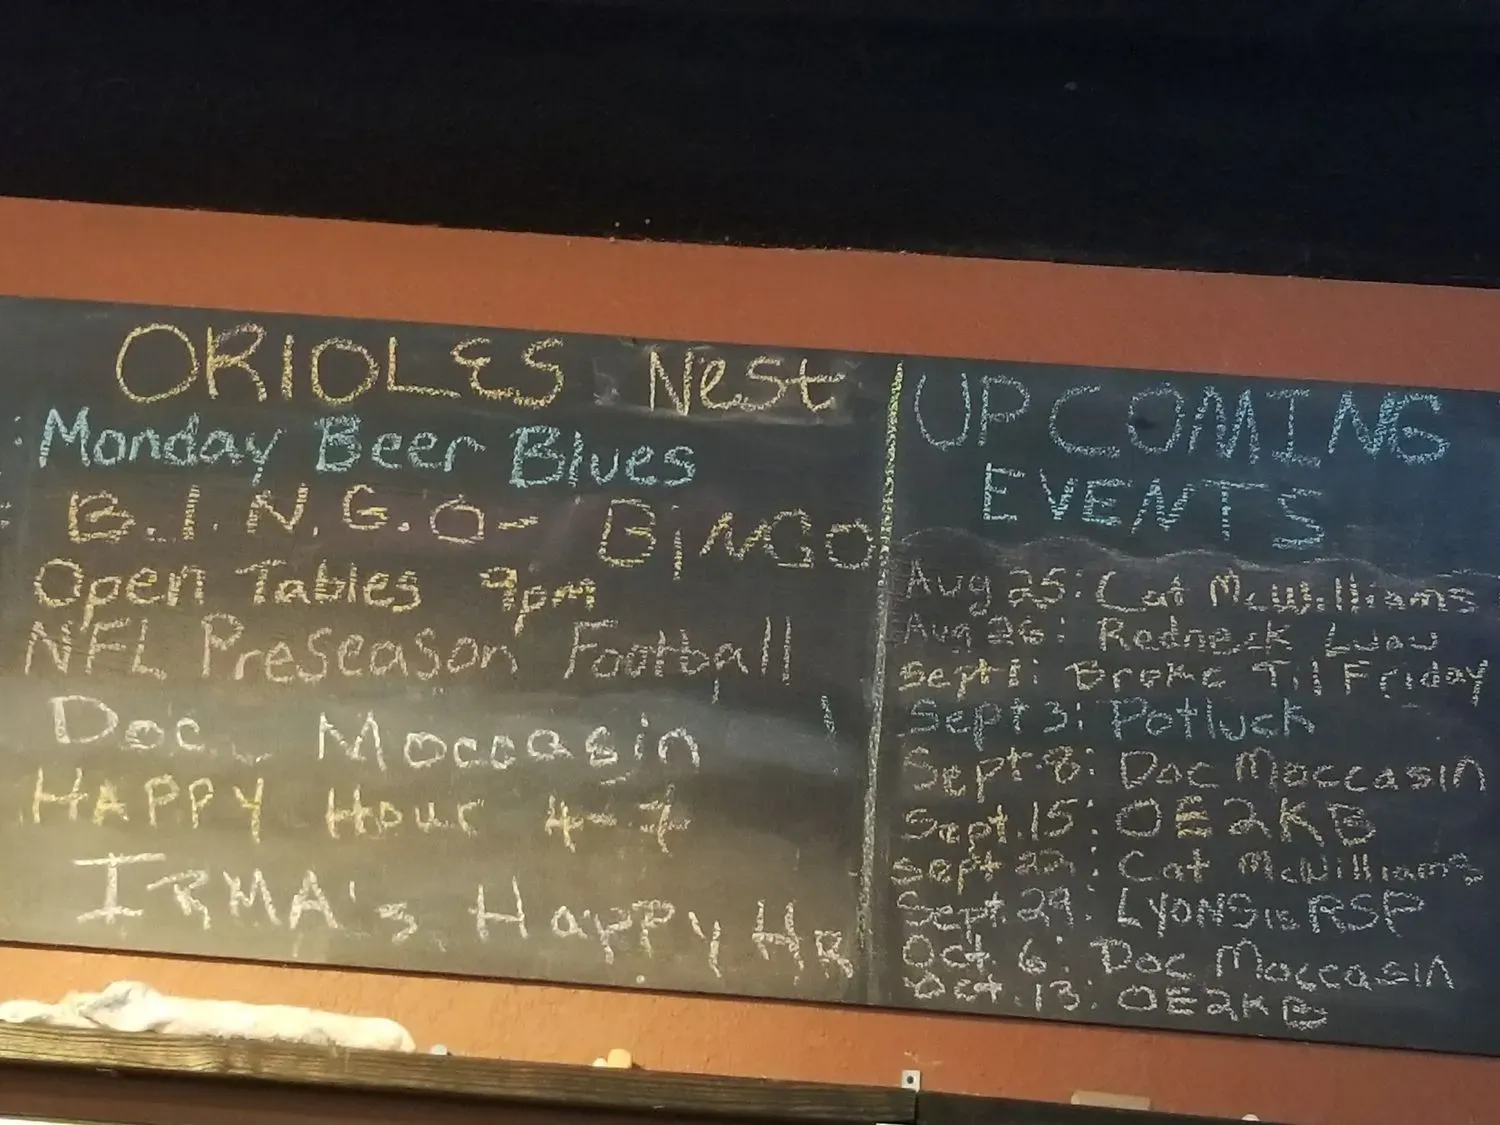 ORIOLES Nest
Monday Beer Blues
B.I.N.G.O- BiNGO
Open Tables 9pm
NFL Preseason Football
Doc Moccasin
HAPPY Hour 4-7
IRMA's HAPPY HR
UPCOMING
EVENTS
Aug 25: Cat McWilliams
Aug 26: Redneck Luau
Sept 1: Broke Til Friday
Sept 3: Potluck
Sept 8: Doc Moccasin
Sept. 15: OE2KB
Sept 22: Cat McWilliams
Sept. 29: LYONS is RSP
Oct. 6: Doc Moccasin
Oct. 13: OE2KB